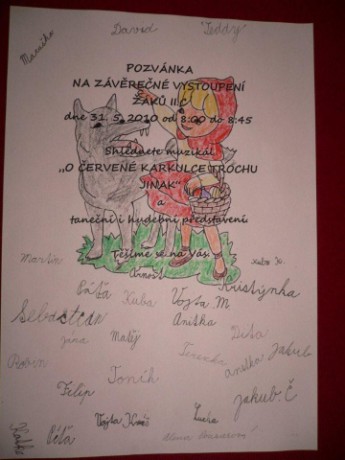 Maruška
David
Teddy
POZVÁNKA
NA ZÁVĚREČNÉ VYSTOUPENÍ
ŽÁKŮ II.C
dne 31. 5. 2010 od 8:00 do 8:45
Shlédnete muzikál
„O ČERVENÉ KARKULCE TROCHU
JINAK“
a
taneční i hudební představení
Těšíme se na Vás!
Martin
Kuba
Vojta M.
Kristýnka
Sebastian
Jána
Matěj
Anička
Dita
Terezka
anička
Jakub
Robin
Filip
Toník
jakub. Č